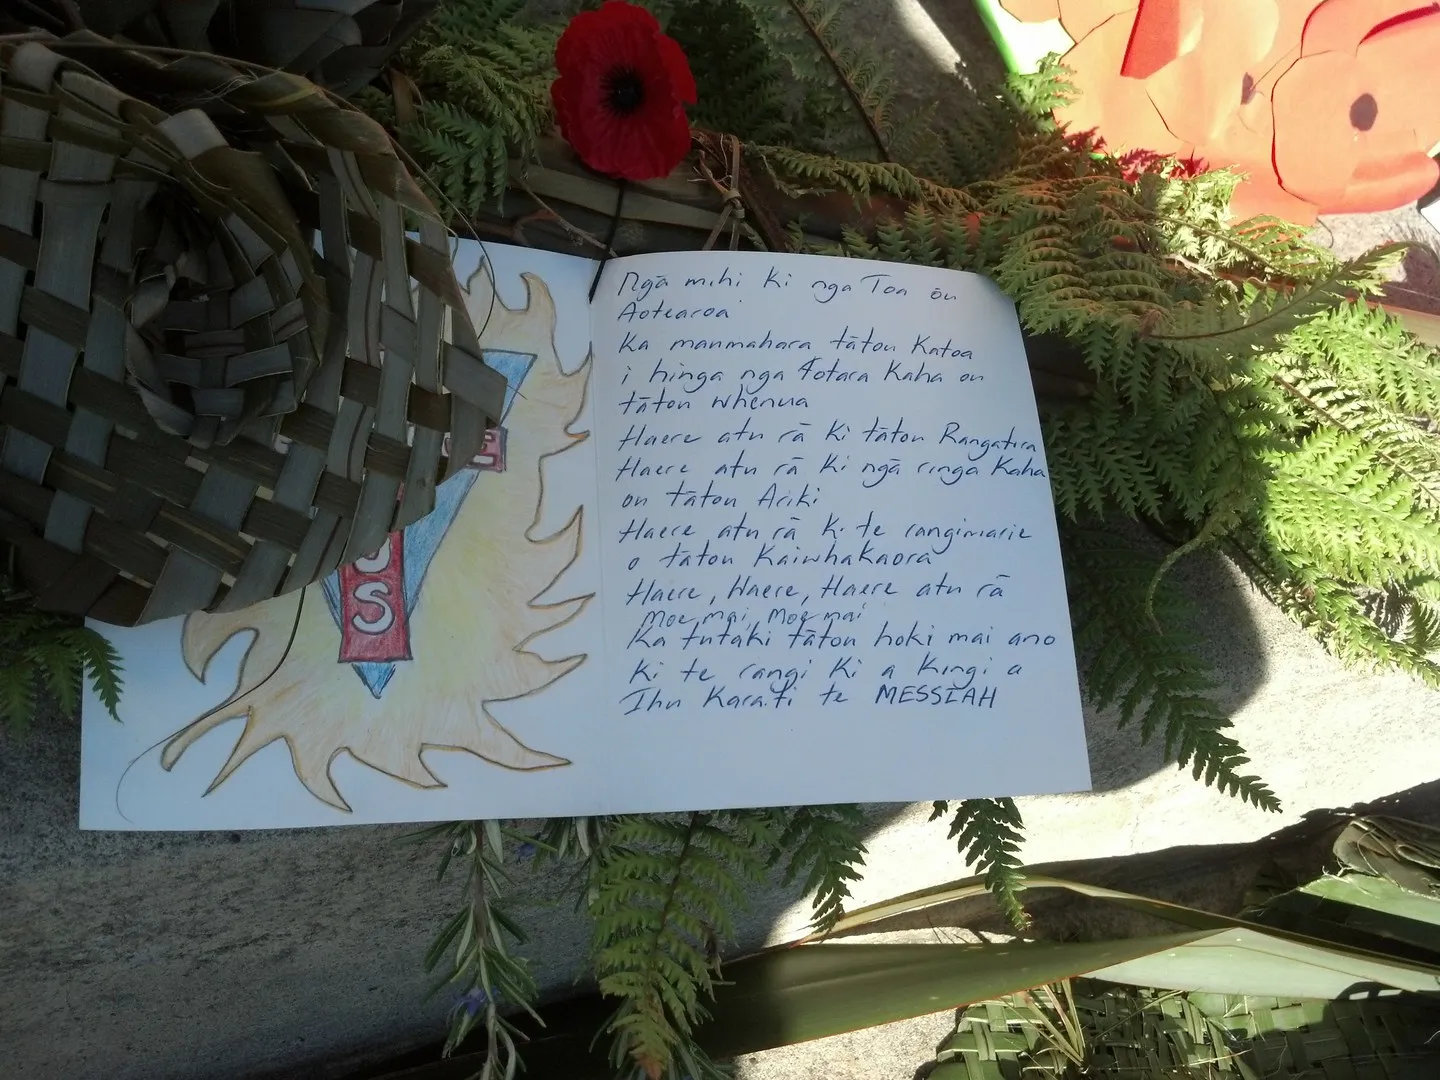 E
US
Ngā mihi ki nga Toa ōu
Aotearoa
Ka manmahara tātou Katoa
i hinga nga Totara Kaha ou
tātou whenua
Haere atu rā ki tātou Rangatira
Haere atu rā ki ngā ringa Kaha
ou tātou Ariki
Haere atu rā ki te rangimarie
o tātou Kaiwhakaora
Haere, Haere, Haere atu rā
Moe mai, Moe mai
Ka tutaki tātou hoki mai ano
ki te rangi ki a Kingi a
Ihu Karaiti te MESSIAH